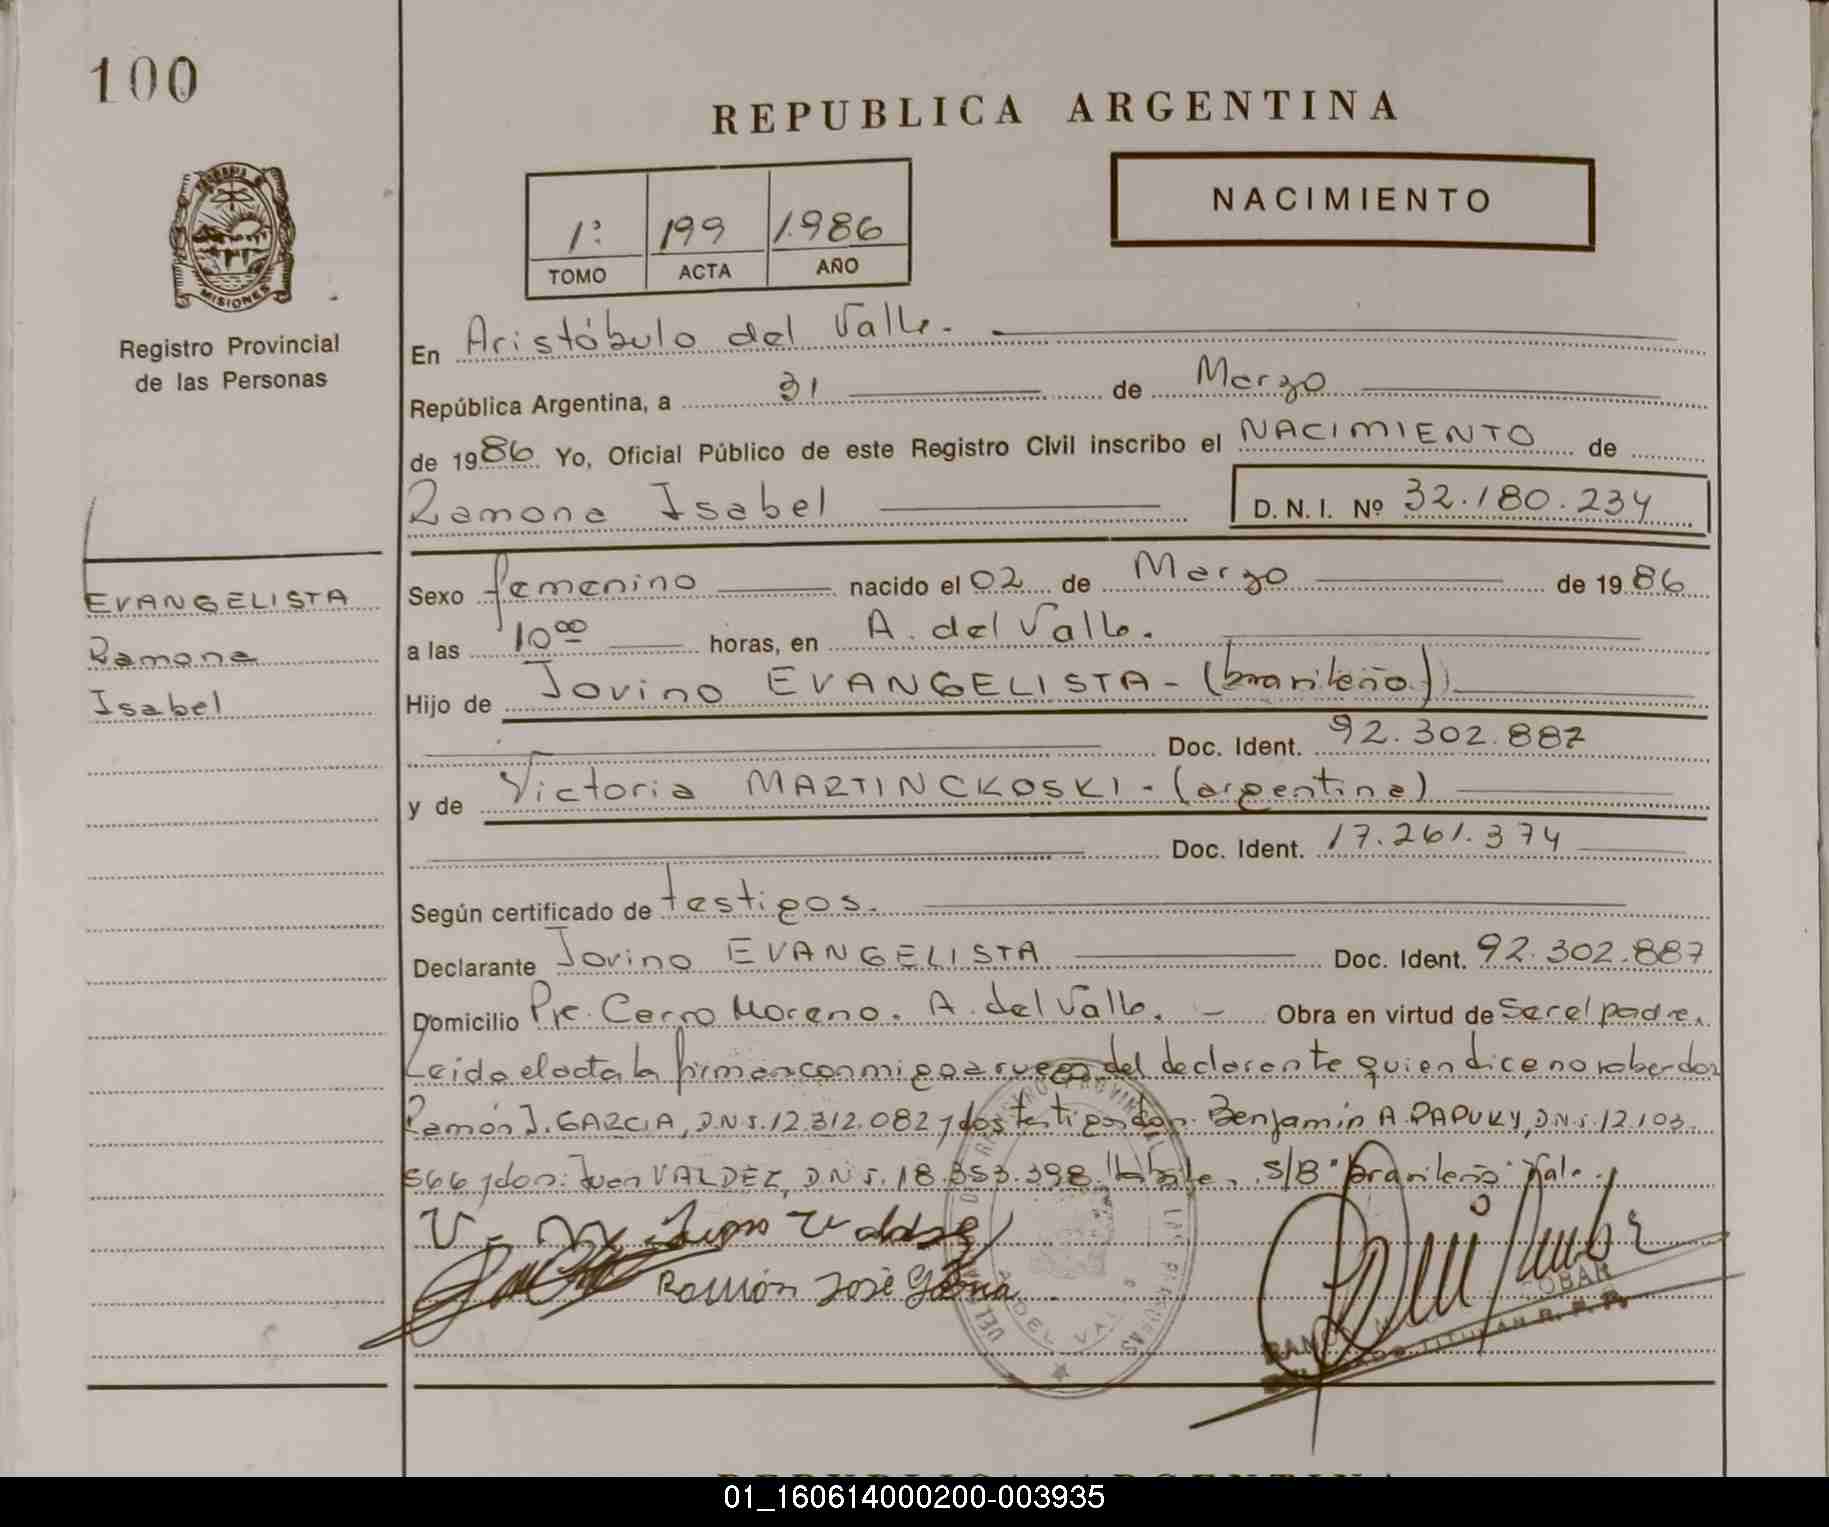 100
REPUBLICA ARGENTINA
NACIMIENTO
1º 199 1.986
TOMO ACTA AÑO
MISIONES
Registro Provincial
de las Personas
En Aristóbulo del Valle.
República Argentina, a 31 de Marzo
de 1986 Yo, Oficial Público de este Registro Civil inscribo el NACIMIENTO de
Ramona Isabel D. N. I. Nº 32.180.234
EVANGELISTA
Ramona
Isabel
Sexo femenino nacido el 02 de Marzo de 1986
a las 10⁰⁰ horas, en A. del Valle.
Hijo de Jovino EVANGELISTA - (brasileño)
Doc. Ident. 92.302.887
y de Victoria MARTINCKOSKI - (argentina)
Doc. Ident. 17.261.374
Según certificado de testigos.
Declarante Jovino EVANGELISTA Doc. Ident. 92.302.887
Domicilio Pje. Cerro Moreno. A. del Valle. - Obra en virtud de ser el padre.
Leida el acta la firman conmigo a ruego del declarante quien dice no saber don
Ramón J. GARCIA, D.N.I. 12.312.082 y los testigos don: Benjamín A. PAPUKY, D.N.I. 12.103.
566 y don: Juan VALDEZ, D.N.I. 18.353.398 S/B "brasileño" Vale.
Ramón José García
TITULAR R. P. P.
01_160614000200-003935